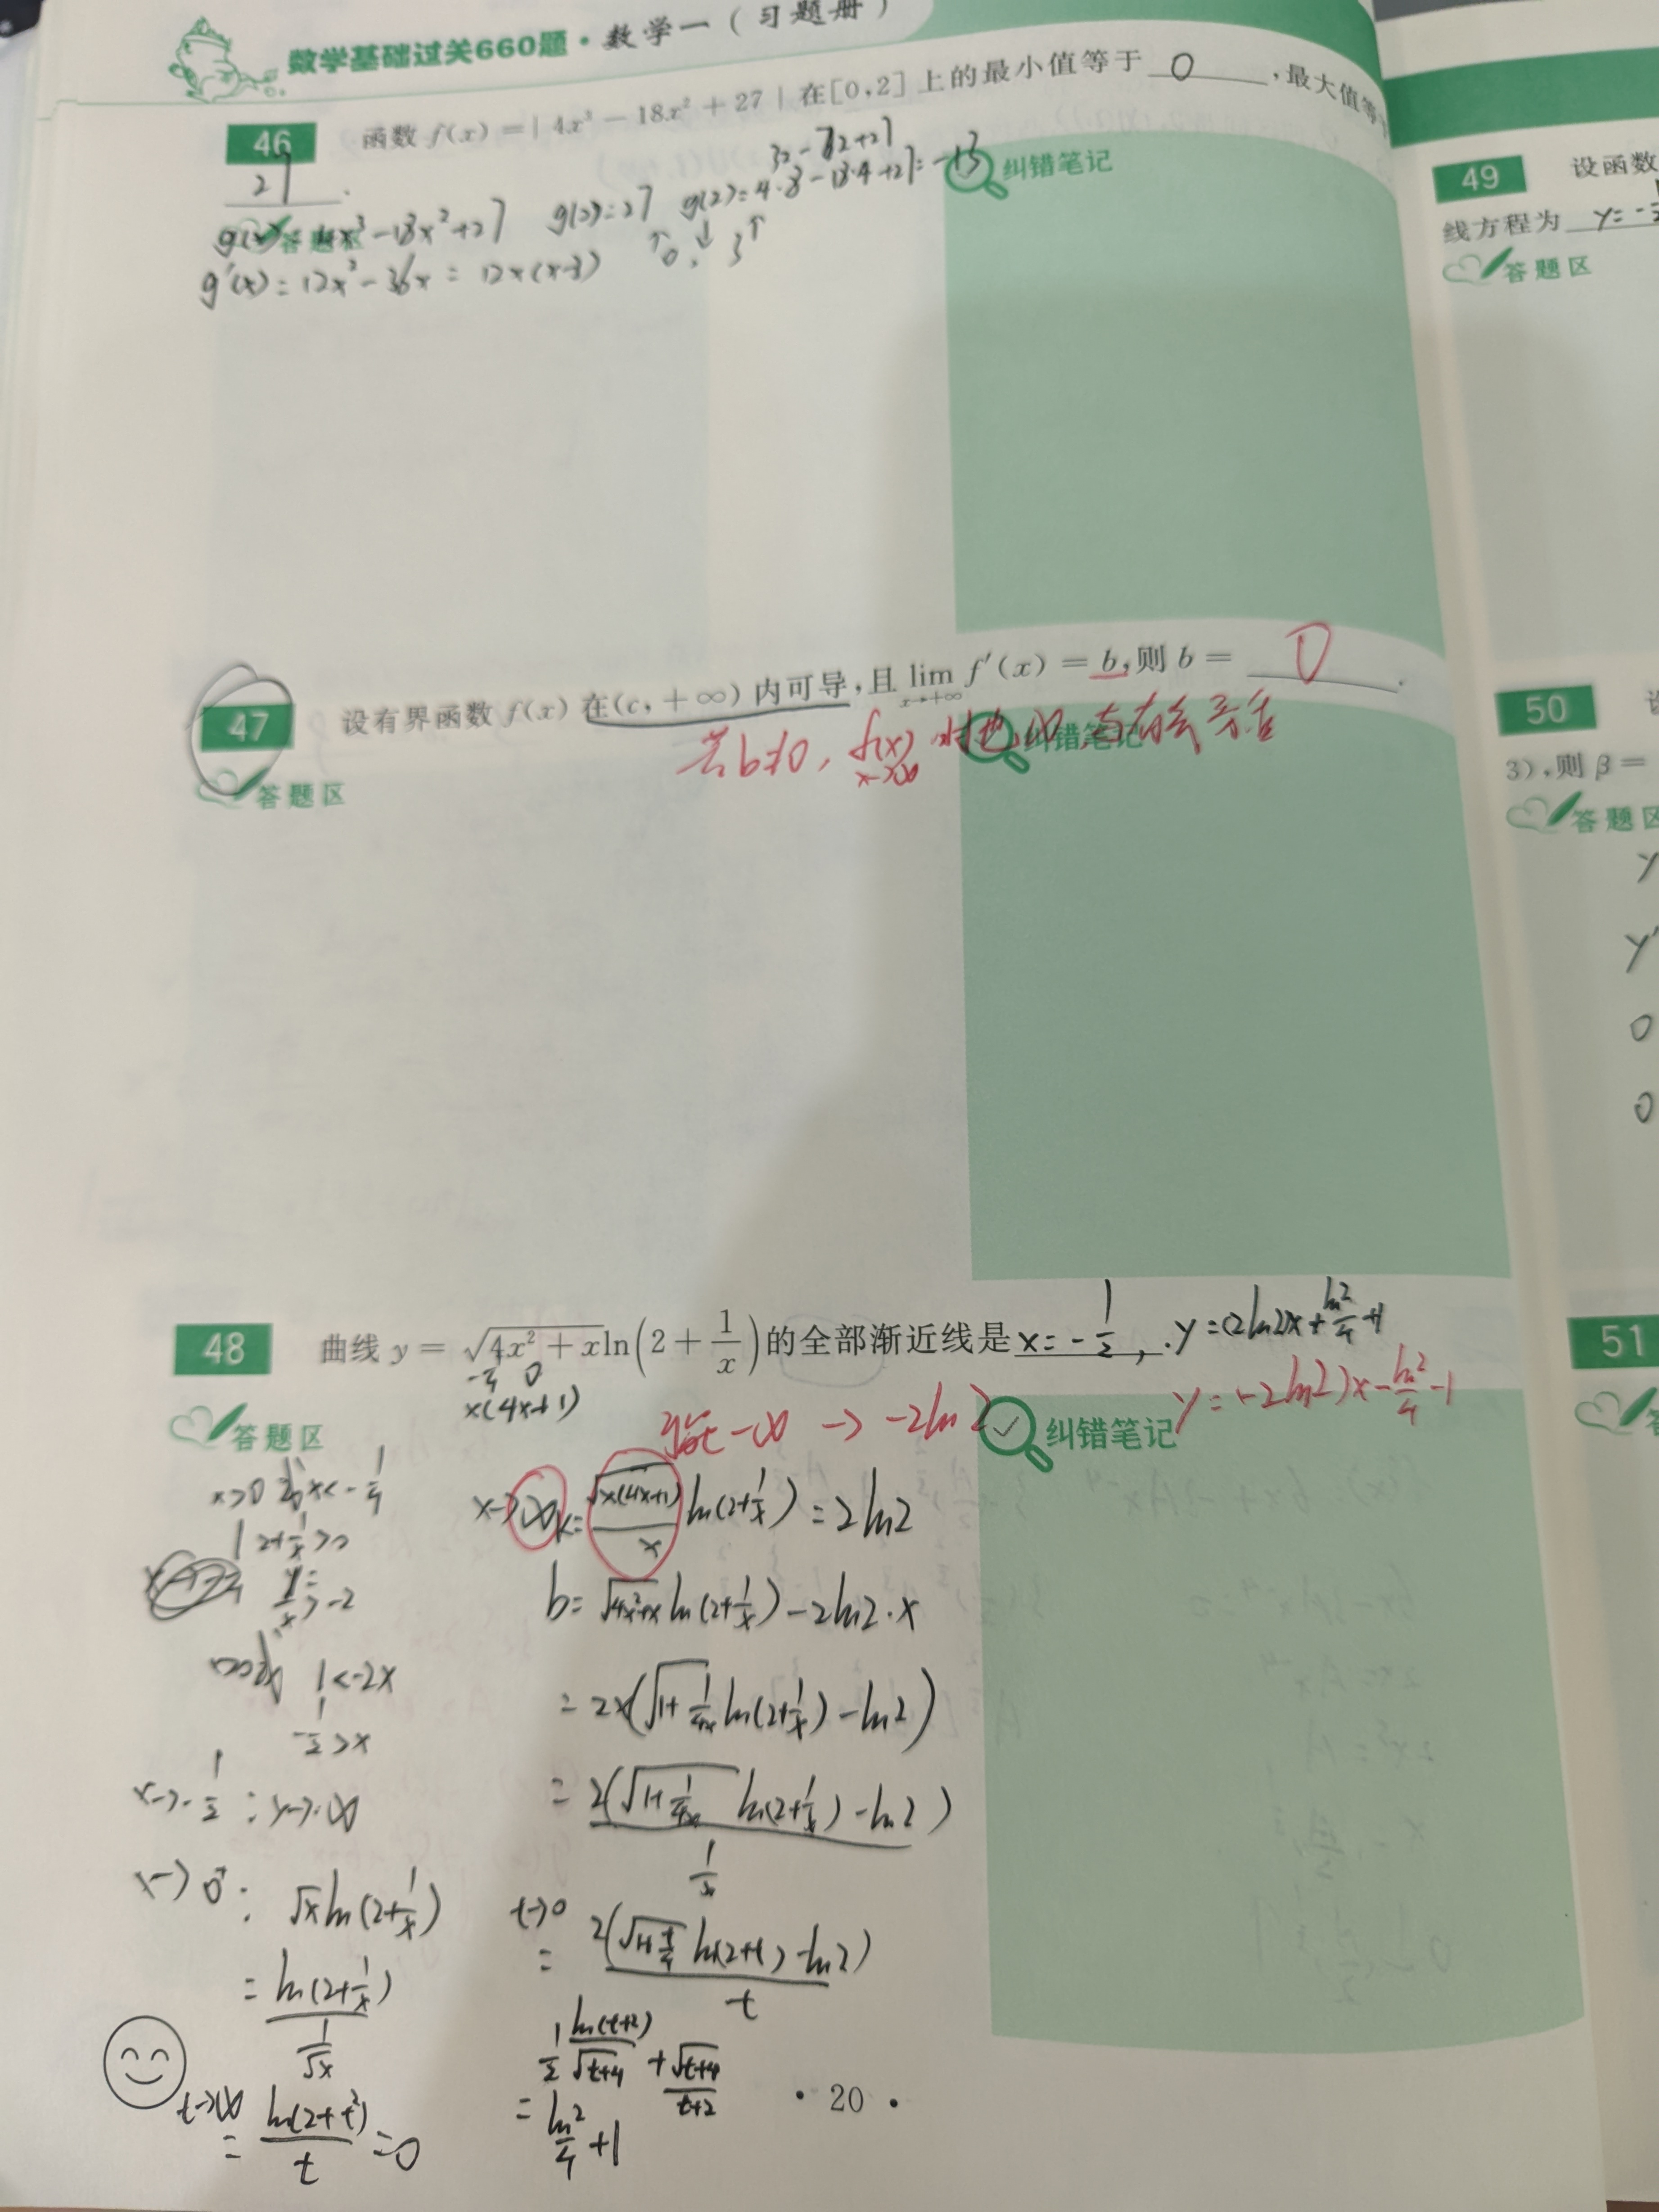 数学基础过关660题·数学一(习题册)
46 函数 f(x) = | 4x³ − 18x² + 27 | 在[0,2] 上的最小值等于 0 ,最大值等于
27 .
32 − 72 + 27
纠错笔记
答题区
g(x) = 4x³ − 18x² + 27 g(0) = 27 g(2) = 4·8 − 18·4 + 27 = −13
g'(x) = 12x² − 36x = 12x(x−3) ↑ 0 ↓ 3 ↑
47 设有界函数 f(x) 在(c, +∞) 内可导,且 lim x→+∞ f'(x) = b,则 b = 0 .
若 b≠0, f(x) x→∞ 时也 ∞ 与有界矛盾
纠错笔记
答题区
48 曲线 y = √(4x² + x) ln(2 + 1/x) 的全部渐近线是 x = −1/2 , . y = (2ln2)x + ln2/4 + 1
−1/4 0
x(4x+1)
y = (−2ln2)x − ln2/4 − 1
−∞ → −2ln2
纠错笔记
答题区
x>0 或 x< −1/4
2 + 1/x > 0
1/x > −2
1 < −2x
−1/2 > x
x→ −1/2 : y→∞
x→0⁺ : √x ln(2 + 1/x)
= ln(2 + 1/x) / (1/√x)
t→∞ = ln(2 + t²) / t = 0
x→∞ k = √(x(4x+1)) / x ln(2 + 1/x) = 2ln2
b = √(4x²+x) ln(2 + 1/x) − 2ln2·x
= 2x(√(1 + 1/4x) ln(2 + 1/x) − ln2)
= 2(√(1 + 1/4x) ln(2 + 1/x) − ln2) / (1/x)
t→0 = 2(√(1 + t/4) ln(2+t) − ln2) / t
1/2 ln(t+2)/√(t+4) + √(t+4)/(t+2)
= ln2/4 + 1
· 20 ·
49 设函数
线方程为 y = −
答题区
50
3),则 β =
答题区
y
y'
0
0
51